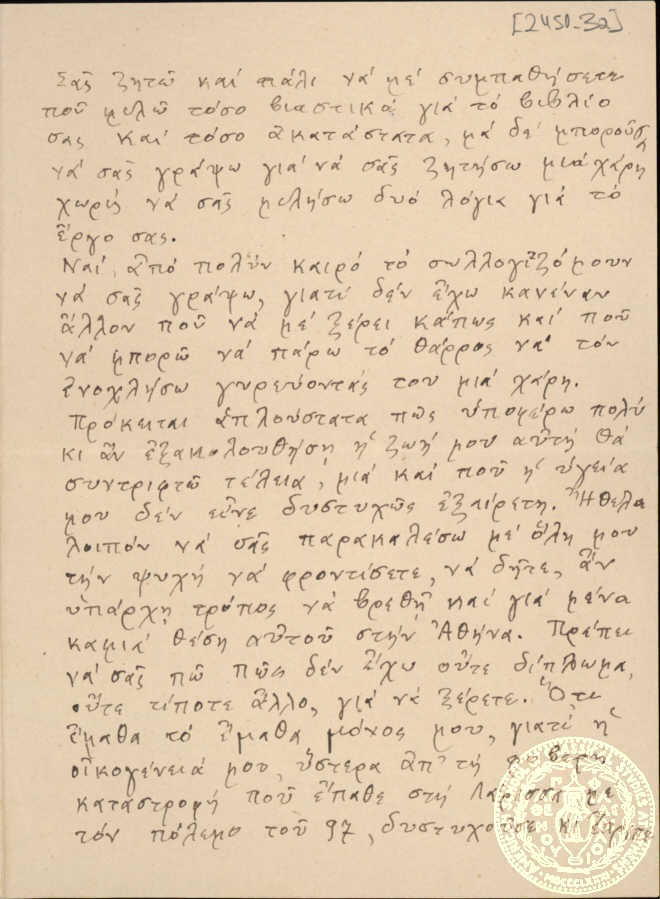 [2450-32]
Σᾶς ζητῶ καί πάλι νά μέ συμπαθήσετε
ποῦ μιλῶ τόσο βιαστικά γιά τό βιβλίο
σας καί τόσο ἀκατάστατα, μά δέ μποροῦσα
νά σᾶς γράψω γιά νά σᾶς ζητήσω μιά χάρη
χωρίς νά σᾶς μιλήσω δυό λόγια γιά τό
ἔργο σας.
Ναί, ἀπό πολύν καιρό τό συλλογιζόμουν
νά σᾶς γράψω, γιατί δέν ἔχω κανέναν
ἄλλον ποῦ νά μέ ξέρει κάπως καί ποῦ
νά μπορῶ νά πάρω τό θάρρος νά τόν
ἐνοχλήσω γυρεύοντάς του μιά χάρη.
Πρόκειται ἁπλούστατα πῶς ὑποφέρω πολύ
κι ἄν ἐξακολουθήση ἡ ζωή μου αὐτή θά
συντριφτῶ τέλεια, μιά καί ποῦ ἡ ὑγεία
μου δέν εἶνε δυστυχῶς ἐξαίρετη. Ἤθελα
λοιπόν νά σᾶς παρακαλέσω μέ ὅλη μου
τήν ψυχή νά φροντίσετε, νά δῆτε, ἄν
ὑπάρχῃ τρόπος νά βρεθῆ καί γιά μένα
καμιά θέση αὐτοῦ στήν Ἀθήνα. Πρέπει
νά σᾶς πῶ πῶς δέν ἔχω οὔτε δίπλωμα,
οὔτε τίποτε ἄλλο, γιά νά ξέρετε. Ὅ,τι
ἔμαθα τό ἔμαθα μόνος μου, γιατί ἡ
οἰκογένειά μου, ὕστερα ἀπ' τή φοβερή
καταστροφή ποῦ ἔπαθε στή Λάρισσα με
τόν πόλεμο τοῦ 97, δυστυχοῦσε κι